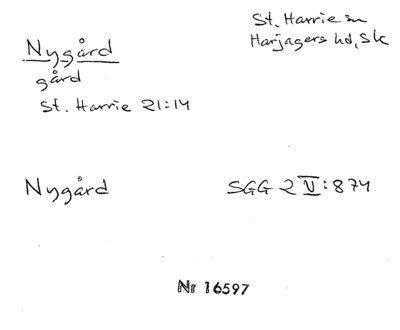 St. Harrie sn
Harjagers hd, Sk
Nygård
gård
St. Harrie 21:14
Nygård
SGG 2 V:874
Nr 16597